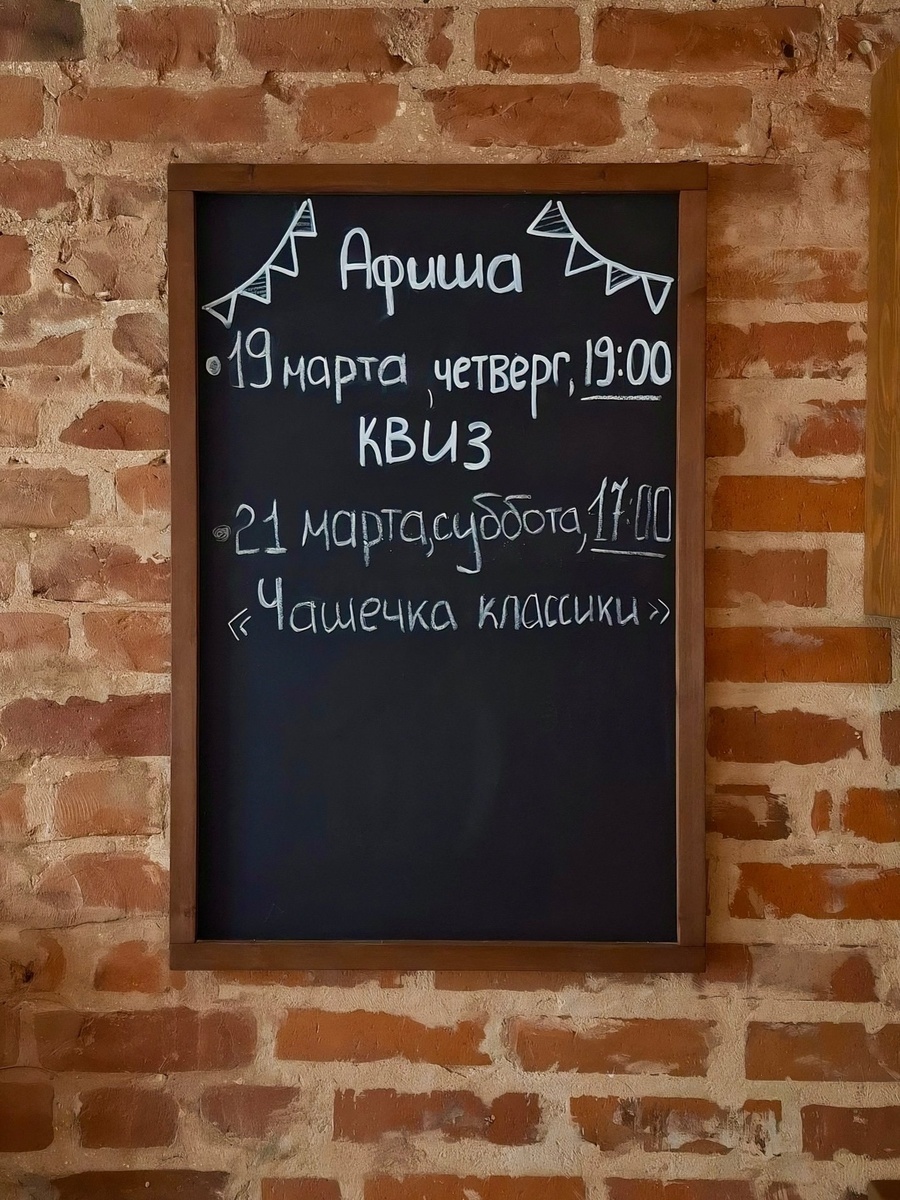 Афиша
• 19 марта, четверг, 19:00
КВИЗ
• 21 марта, суббота, 17:00
«Чашечка классики»